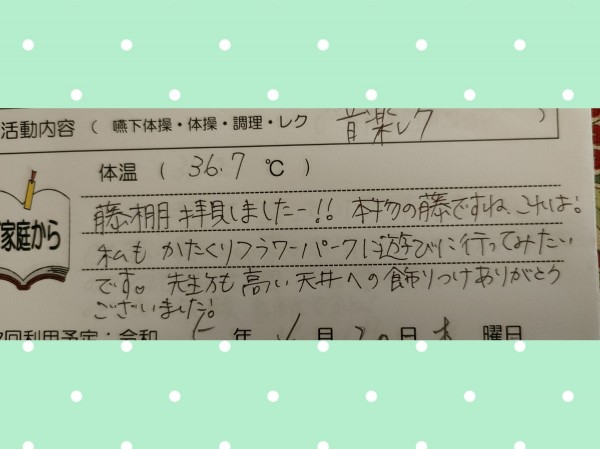 活動内容 ( 嚥下体操・体操・調理・レク 音楽レク )
体温 ( 36.7 ℃ )
家庭から
藤棚 拝見しましたー!! 本物の藤ですね、これは!
私も かたくりフラワーパークに遊びに行ってみたい
です。先生方も 高い 天井への飾りつけありがとう
ございました!
次回利用予定:令和 5 年 4 月 20 日 木 曜日